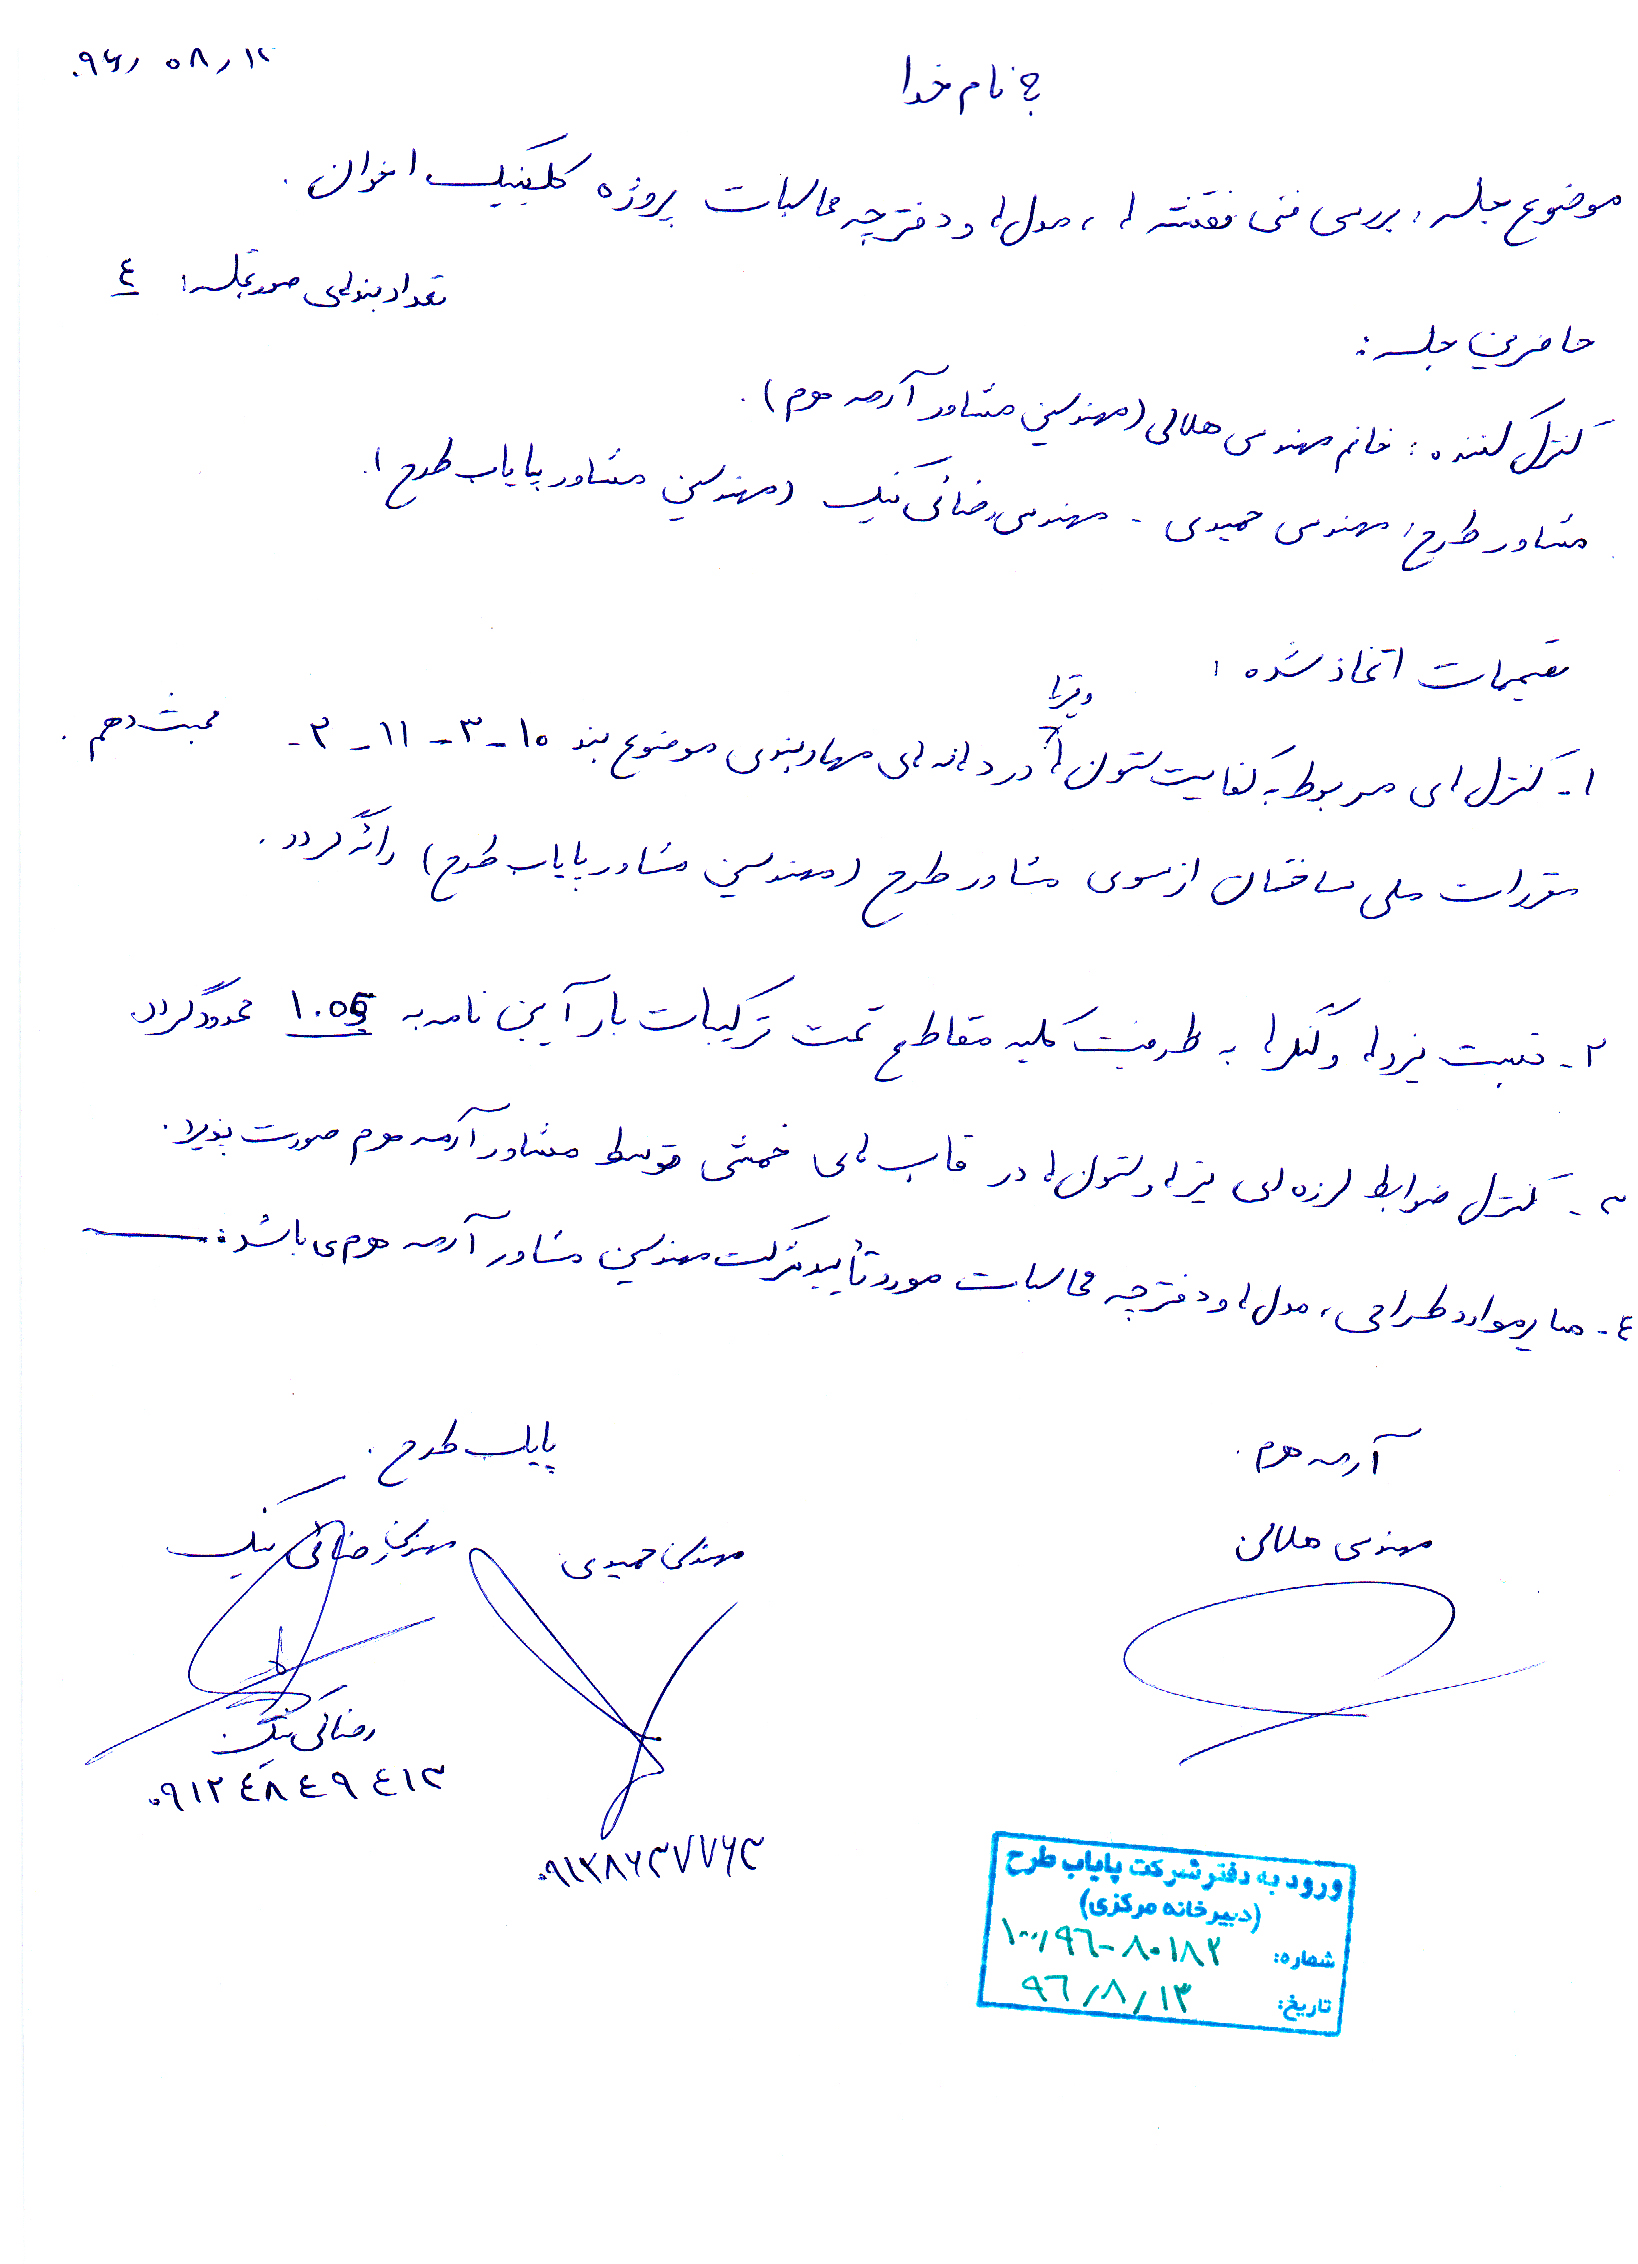 ۹۶/۰۸/۱۲
به نام خدا
موضوع جلسه: بررسی فنی نقشه ها، مدل ها و دفترچه محاسبات پروژه کلینیک اخوان.
تعداد بندهای صورتجلسه: ٤
حاضرین جلسه:
کنترل کننده: خانم مهندس هلالی (مهندسین مشاور آرمه هرم).
مشاور طرح: مهندس حمیدی - مهندس رضائی نیک (مهندسین مشاور پایاب طرح).
تصمیمات اتخاذ شده:
و تیرها
۱- کنترل های مربوط به کفایت ستون ها در دهانه های مهاربندی موضوع بند ۱۰-۳-۱۱-۲- مبحث دهم
مقررات ملی ساختمان از سوی مشاور طرح (مهندسین مشاور پایاب طرح) ارائه گردد.
۲- نسبت نیروها و لنگرها به ظرفیت کلیه مقاطع تحت ترکیبات بار آیین نامه به ۱.۰۵ محدود گردد
۳- کنترل ضوابط لرزه ای تیرها و ستون ها در قاب های خمشی توسط مشاور آرمه هرم صورت پذیرد.
٤- سایر موارد طراحی، مدل ها و دفترچه محاسبات مورد تأیید شرکت مهندسین مشاور آرمه هرم می باشد.
آرمه هرم.
پایاب طرح.
مهندس هلالی
مهندس حمیدی
مهندس رضائی نیک
رضائی نیک
۰۹۱۲٤۸٤۹٤۱۳
۰۹۱۲۸۶۳۷۷۶۳
ورود به دفتر شرکت پایاب طرح
(دبیرخانه مرکزی)
شماره: ۱۰۰/۹٦-۸۰۱۸۲
تاریخ: ۹٦/۸/۱۳